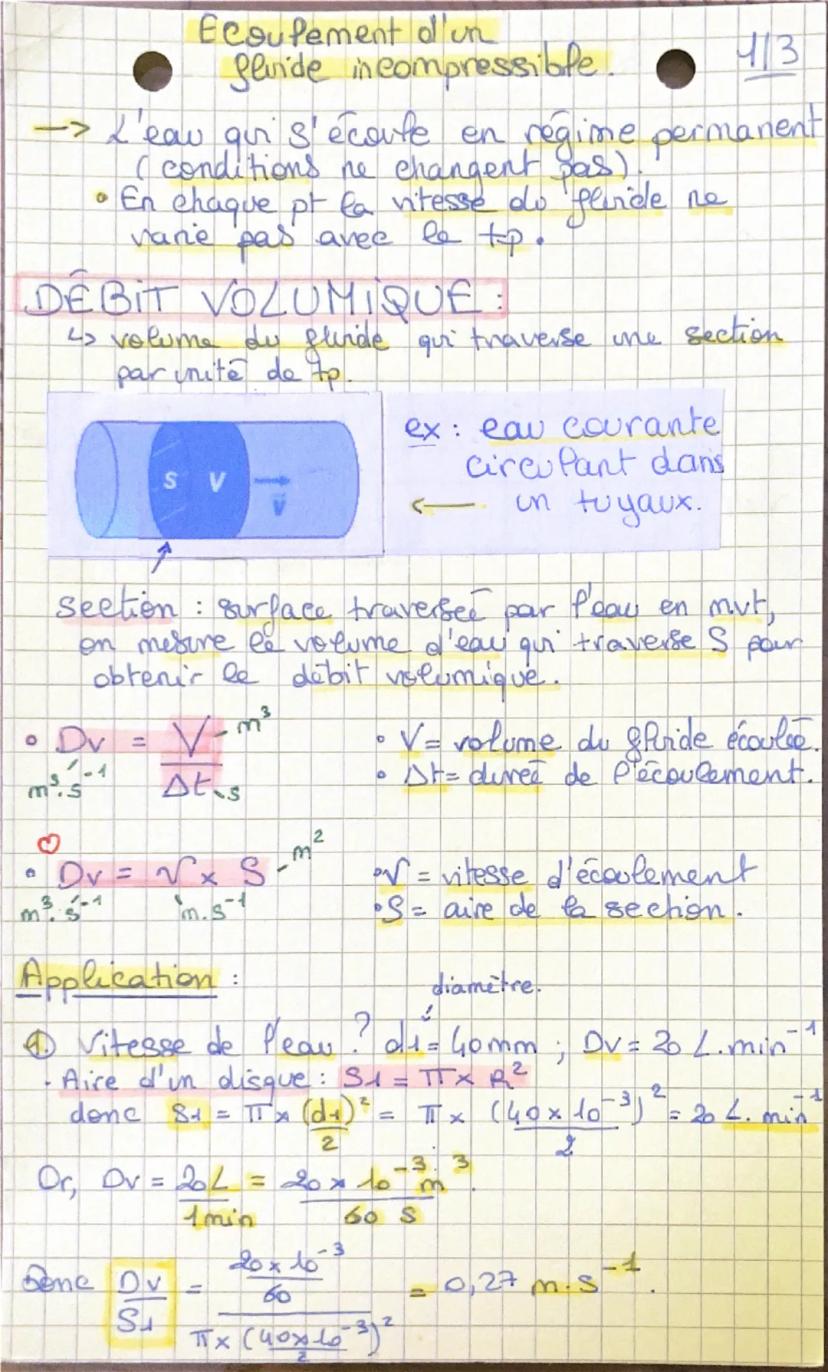 Ecoulement d'un
fluide incompressible.
1/3
-> L'eau qui s'écoule en régime permanent
(conditions ne changent pas).
• En chaque pt la vitesse du fluide ne
varie pas avec le tp.
DÉBIT VOLUMIQUE :
↳ volume du fluide qui traverse une section
par unité de tp.
S V v
ex : eau courante
circulant dans
← un tuyaux.
section : surface traverseé par l'eau en mvt,
on mesure le volume d'eau qui traverse S pour
obtenir le débit volumique.
• Dv = V/Δt
m³.s⁻¹ m³ s
• V = volume du fluide écoulée.
• Δt = dureé de l'écoulement.
♡
• Dv = v x S
m³.s⁻¹ m.s⁻¹ m²
• v = vitesse d'écoulement
• S = aire de la section.
Application :
diamètre.
① Vitesse de l'eau ? d1 = 40mm ; Dv = 20 L.min⁻¹
- Aire d'un disque : S1 = π x R²
donc S1 = π x (d1/2)² = π x (40 x 10⁻³/2)² = 20 L.min⁻¹
Or, Dv = 20L/1min = 20 x 10⁻³ m³/60 s.
Donc Dv/S1 = (20 x 10⁻³/60)/(π x (40x10⁻³/2)²) = 0,27 m.s⁻¹.